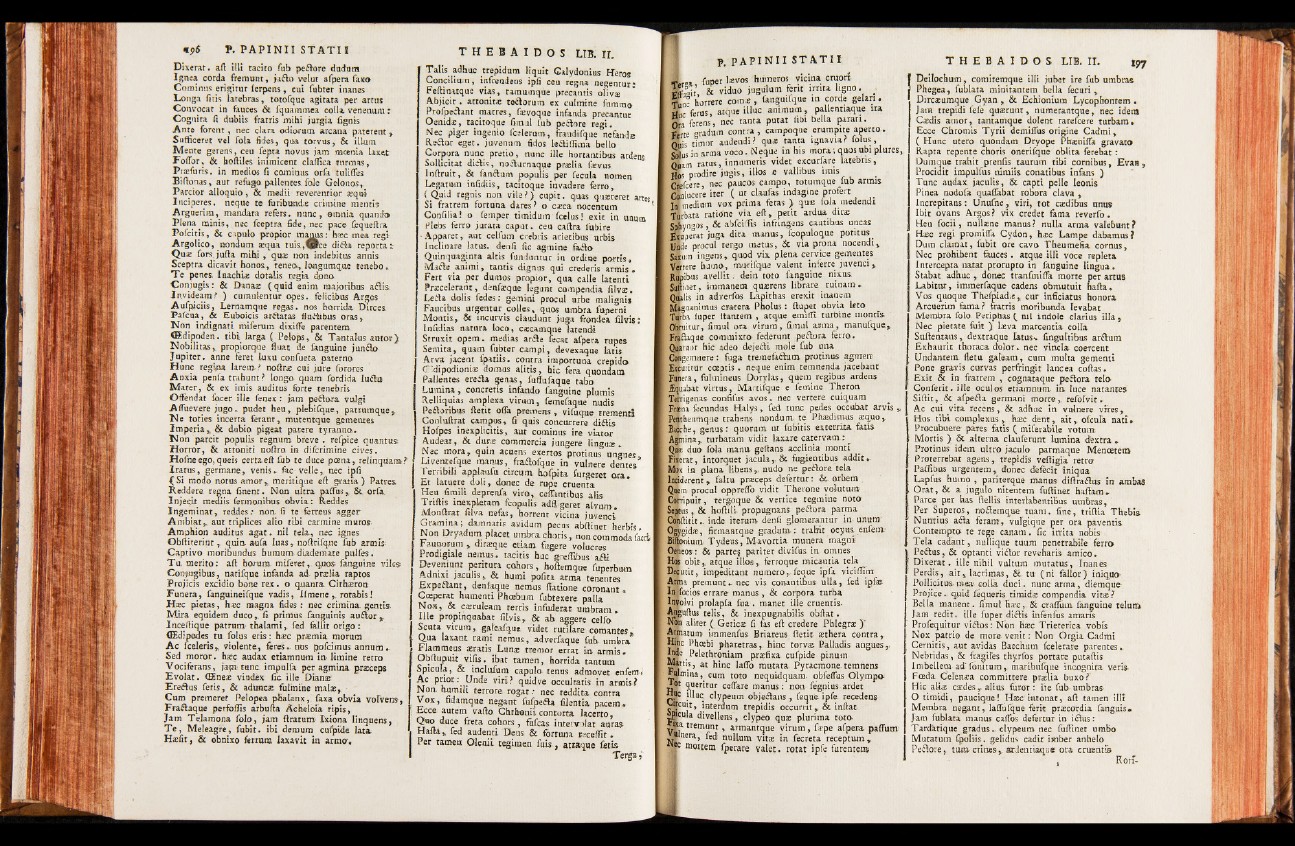 196 P. PAPINII STATII
Dixerat. ast illi tacito sub pectore dudum
Ignea corda fremunt, jacto velut aspera saxo
Cominus erigitur serpens, cui subter inanes
Longa sitis latebras, totosque agitata per artus
Convocat in fauces & squammea colla venenum:
Cognita si dubiis fratris mihi jurgia signis
Ante forent, nec clara odiorum arcana paterent,
Sufficeret vel sola fides, qua torvus, & illum
Mente gerens, ceu septa novus jam mœnia laxet
Fossor, & hostiles inimicent classica turmas,
Præfuris. in medios si cominus orsa tulisses
Bistonas, aut refugo pallentes sole Gelonos,
Parcior alloquio, & medii reverentior æqui
Inciperes. neque te furibundæ crimine mentis
Arguerim, mandata refers. nunc, omnia quando
Plena minis, nec sceptra fide, nec pace sequestra
Poscitis, & capulo propior manus: hæc mea regi
Argolico, nondum æqua tuis, dicta reporta:
Quæ sors justa mihi, quæ non indebitus annis
Sceptra dicavit honos, teneo, longumque tenebo.
Te penes Inachiæ dotalis regia dono
Conjugis: & Danaæ (quid enim majoribus actis
Invideam?) cumulentur opes. felicibus Argos
Auspiciis, Lernamque regas. nos horrida Dirces
Pascua, & Euboicis arctatas fluctibus oras,
Non indignati miserum dixisse parentem
Œdipoden. tibi larga (Pelops, & Tantalus autor)
Nobilitas, propiorque fluat de sanguine juncto
Jupiter. anne feret luxu consueta paterno
Hunc regina larem? nostræ cui jure sorores
Anxia pensa trahunt? longo quam sordida luctu
Mater, & ex imis auditus forte tenebris
Offendat sacer ille senex: jam pectora vulgi
Assuevere jugo. pudet heu, plebisque, patrumque,
Ne toties incerta ferant, mutentque gementes
Imperia, & dubio pigeat parere tyranno.
Non parcit populis regnum breve. respice quantus
Horror, & attoniti nostro in discrimine cives.
Hosne ego, queis certa est sub te duce pœna, relinquam?
Iratus, germane, venis. fac velle, nec ipsi
(Si modo notus amor, meritique est gratia) Patres
Reddere regna sinent. Non ultra passus, & orsa
Injecit mediis sermonibus obvia: Reddes
Ingeminat, reddes: non si te ferreus agger
Ambiat, aut triplices alio tibi carmine muros
Amphion auditus agat. nil tela, nec ignes
Obstiterint, quin ausa luas, nostrisque sub armis
Captivo moribundus humum diademate pulses.
Tu merito: ast horum miseret, quos sanguine viles
Conjugibus, natisque infanda ad prælia raptos
Projicis excidio bone rex. o quanta Cithæron
Funera, sanguineisque vadis, Ismene, rotabis!
Hæc pietas, hæc magna fides: nec crimina gentis
Mira equidem duco, si primus sanguinis auctor,
Incestique patrum thalami, sed fallit origo:
Œdipodes tu solus eris: hæc præmia morum
Ac sceleris, violente, feres. nos poscimus annum.
Sed moror. hæc audax etiamnum in limine retro
Vociferans, jam tunc impulsa per agmina præceps
Evolat. Œneæ vindex sic ille Dianæ
Erectus setis, & aduncæ fulmine malæ,
Cum premeret Pelopea phalanx, saxa obvia volvens,
Fractaque perfossis arbusta Acheloia ripis,
Jam Telamona solo, jam stratum Ixiona linquens,
Te, Meleagre, subit. ibi demum cuspide lata
Hæsit, & obnixo ferrum laxavit in armo.
THEBAIDOS LIB. II.
Talis adhuc trepidum liquit Calydonius Heros
Concilium, infrendens ipsi ceu regna negentur:
Festinatque vias, ramumque precantis olivæ
Abjicit. attonitæ tectorum ex culmine summo
Prospectant matres, sævoque infanda precantur
Oenidæ, tacitoque simul sub pectore regi.
Nec piger ingenio scelerum, fraudisque nefandæ
Rector eget. juvenum fidos lectissima bello
Corpora nunc pretio, nunc ille hortantibus ardens
Sollicitat dictis, nocturnaque prælia sævus
Instruit, & sanctum populis per secula nomen
Legatum insidiis, tacitoque invadere ferro,
(Quid regnis non vile?) cupit. quas quæreret artes,
Si fratrem fortuna dares? o cæca nocentum
Consilia! o semper timidum scelus! exit in unum
Plebs ferro jurata caput. ceu castra subire
Apparet, aut celsum crebris arietibus urbis
Inclinare latus. densi sic agmine facto
Quinquaginta altis funduntur in ordine portis,
Macte animi, tantis dignus qui crederis armis.
Fert via per dumos propior, qua calle latenti
Præcelerant, densæque legunt compendia silvæ.
Lecta dolis sedes: gemini procul urbe malignis
Faucibus urgentur colles, quos umbra superni
Montis, & incurvis claudunt juga frondea silvis:
Insidias natura loco, cæcamque latendi
Struxit opem. medias arcte secat aspera rupes
Semita, quam subter campi, devexaque latis
Arva jacent spatiis. contra importuna crepido
Œdipodioniæ domus alitis, hic fera quondam
Pallentes erecta genas, suffusaque tabo
Lumina, concretis infando sanguine plumis
Relliquias amplexa virum, semesaque nudis
Pectoribus stetit ossa premens, visuque trementi
Conlustrat campos, si quis concurrere dictis
Hospes inexplicitis, aut cominus ire viator
Audeat, & diræ commercia jungere linguæ.
Nec mora, quin acuens exertos protinus ungues,
Liventesque manus, fractosque in vulnere dentes
Terribili applausu circum hospita surgeret ora.
Et latuere doli, donec de rupe cruenta
Heu simili deprensa viro, cessantibus alis
Tristis inexpletam scopulis adfligeret alvum.
Monstrat silva nefas, horrent vicina juvenci
Gramina; damnatis avidum pecus abstinet herbis.
Non Dryadum placet umbra choris, non commoda sacris
Faunorum, diræque etiam fugere volucres
Prodigiale nemus. tacitis huc gressibus acti
Deveniunt peritura cohors, hostemque superbum
Adnixi jaculis, & humi posita arma tenentes
Expectant, densaque nemus statione coronant.
Cœperat humenti Phœbum subtexere palla
Nox, & cæruleam terris infuderat umbram.
Ille propinquabat silvis, & ab aggere celso
Scuta virum, galeasque videt rutilare comantes,
Qua laxant rami nemus, adversaque sub umbra
Flammeus æratis Lunæ tremor errat in armis.
Obstupuit visis. ibat tamen, horrida tantum
Spicula, & inclusum capulo tenus admovet ensem.
Ac prior: Unde viri? quidve occultatis in armis?
Non humili terrore rogat: nec reddita contra
Vox, fidamque negant suspecta silentia pacem.
Ecce autem vasto Chthonii contorta lacerto,
Quo duce freta cohors, fuscas intervolat auras
Hasta, sed audenti Deus & fortuna recessit.
Per tamen Olenii tegimen suis, atraque setis
Terga,
P. PAPINII STATII
Terga, super lævos humeros vicina cruori
Effugit, & viduo jugulum ferit irrita ligno.
Tunc horrere comæ, sanguisque in corde gelari.
Huc ferus, atque illuc animum, pallentiaque ira
Ora ferens, nec tanta putat sibi bella parari.
Ferte gradum contra, campoque erumpite aperto.
Quis timor audendi? quæ tanta ignavia? solus,
Solus in arma voco. Neque in his mora: quos ubi plures,
Quam ratus, innumeris videt excursare latebris,
Hos prodire jugis, illos e vallibus imis
Crescere, nec paucos campo, totumque sub armis
Conlucere iter (ut clausas indagine profert
In medium vox prima feras) quæ sola medendi
Turbata ratione via est, petit ardua diræ
Sphyngos, & abscissis infringens cautibus uncas
Exuperat juga dira manus, scopuloque potitus
Unde procul tergo metus, & via prona nocendi,
Saxum ingens, quod vix plena cervice gementes
Vertere humo, murisque valent inferre juvenci,
Rupibus avellit. dein toto sanguine nixus
Sustinet, immanem quærens librare ruinam.
Qualis in adversos Lapithas erexit inanem
Magnanimus cratera Pholus: stupet obvia leto
Turba super stantem, atque emissi turbine montis
Obruitur, simul ora virum, simul arma, manusque,
Fractaque commixto sederunt pectora ferro.
Quatuor hic adeo dejecti mole sub una
Congemuere: fuga tremefactum protinus agmen
Excutitur cœptis. neque enim temnenda jacebant
Funera, fulmineus Dorylas, quem regibus ardens
Æquabat virtus, Martisque e semine Theron
Terrigenas confisus avos. nec vertere cuiquam
Fræna secundus Halys, sed tunc pedes occubat arvis,
Pentheumque trahens nondum te Phædimus æquo,
Bacche, genus: quorum ut subitis exterrita fatis
Agmina, turbatam vidit laxare catervam:
Quæ duo sola manu gestans acclinia monti
Fixerat, intorquet jacula, & fugientibus addit.
Mox in plana libens, nudo ne pectore tela
Inciderent, saltu præceps defertur: & orbem
Quem procul oppresso vidit Therone volutum
Corripuit, tergoque & vertice tegmine noto
Septus, & hostili propugnans pectora parma
Constitit. inde iterum densi glomerantur in unum
Ogygidæ, firmantque gradum: trahit ocyus ensem
Bistonium Tydeus, Mavortia munera magni
Oeneos: & partes pariter divisus in omnes
Hos obit, atque illos, ferroque micantia tela
Decutit, impeditant numero, seque ipsa vicissim
Arma premunt. nec vis conantibus ulla, sed ipsæ
In socios errare manus, & corpora turba
Involvi prolapsa sua. manet ille cruentis
Angustus telis, & inexpugnabilis obstat.
Non aliter (Geticæ si fas est credere Phlegræ)
Armatum immensus Briareus stetit æthera contra,
Hinc Phœbi pharetras, hinc torvæ Palladis angues,
Inde Pelethroniam præfixa cuspide pinum
Martis, at hinc lasso mutata Pyracmone temnens
Fulmina, cum toto nequidquam obsessus Olympo
Tot queritur cessare manus: non segnius ardet
Huc illuc clypeum objectans, seque ipse recedens
Circuit, interdum trepidis occurrit, & instat
Spicula divellens, clypeo quæ plurima toto
Fixa tremunt, armantque virum, sæpe aspera passum
Vulnera, sed nullum vitæ in secreta receptum,
Nec mortem sperare valet. rotat ipse furentem
THEBAIDOS LIB. II. 197
Deilochum, comitemque illi jubet ire sub umbras
Phegea, sublata minitantem bella securi,
Dircæumque Gyan, & Echionium Lycophontem.
Jam trepidi sese quærunt, numerantque, nec idem
Cædis amor, tantamque dolent rarescere turbam.
Ecce Chromis Tyrii demissus origine Cadmi,
(Hunc utero quondam Dryope Phœnissa gravato
Rapta repente choris onerisque oblita ferebat:
Dumque trahit prensis taurum tibi cornibus, Evan,
Procidit impulsus nimiis conatibus infans)
Tunc audax jaculis, & capti pelle leonis
Pinea nodosa quassabat robora clava,
Increpitans: Unusne, viri, tot cædibus unus
Ibit ovans Argos? vix credet fama reverso.
Heu socii, nullæne manus? nulla arma valebunt?
Hæc regi promissa Cydon, hæc Lampe dabamus?
Dum clamat, subit ore cavo Theumesia cornus,
Nec prohibent fauces. atque illi voce repleta
Intercepta natat prorupto in sanguine lingua.
Stabat adhuc, donec transmissa morte per artus
Labitur, immersaque cadens obmutuit hasta.
Vos quoque Thespiadæ, cur inficiatus honora
Arcuerim fama? fratris moribunda levabat
Membra solo Periphas (nil indole clarius illa,
Nec pietate fuit) læva marcentia colla
Sustentans, dextraque latus. singultibus arctum
Exhaurit thoraca dolor. nec vincla coercent
Undantem fletu galeam, cum multa gementi
Pone gravis curvas perfringit lancea costas.
Exit & in fratrem, cognataque pectora telo
Conserit. ille oculos etiamnum in luce natantes
Sistit, & aspecta germani morte, resolvit.
Ac cui vita recens, & adhuc in vulnere vires,
Hos tibi complexus, hæc dent, ait, oscula nati.
Procubuere pares fatis (miserabile votum
Mortis) & alterna clauserunt lumina dextra.
Protinus idem ultro jaculo parmaque Menœtem
Proterrebat agens, trepidis vestigia retro
Passibus urgentem, donec defecit iniqua
Lapsus humo, pariterque manus distractus in ambas
Orat, & a jugulo nitentem sustinet hastam.
Parce per has stellis interlabentibus umbras,
Per Superos, noctemque tuam. sine, tristia Thebis
Nuntius acta feram, vulgique per ora paventis
Contempto te rege canam. sic irrita nobis
Tela cadant, nullique tuum penetrabile ferro
Pectus, & optanti victor revehatis amico.
Dixerat. ille nihil vultum mutatus, Inanes
Perdis, ait, lacrimas, & tu (ni fallor) iniquo
Pollicitus mea colla duci. nunc arma, diemque
Projice. quid sequeris timidæ compendia vitæ?
Bella manent. simul hæc, & crassum sanguine telum
Jam redit. ille super dictis infensus amaris
Prosequitur victos: Non hæc Trieterica vobis
Nox patrio de more venit: Non Orgia Cadmi
Cernitis, aut avidas Bacchum scelerare parentes.
Nebridas, & fragiles thyrsos portare putastis
Imbellem ad sonitum, marisbusque incognita veris
Fœda Celenæa committere prælia buxo?
Hic aliæ cædes, alius furor: ite sub umbras
O timidi, paucique! Hæc intonat, ast tamen illi
Membra negant, lassusque ferit præcordia sanguis.
Jam sublata manus cassos defertur in ictus:
Tardatique gradus. clypeum nec sustinet umbo
Mutatum spoliis. gelidus cadit imber anhelo
Pectore, tum crines, ardentiaque ora cruentis
Rori-